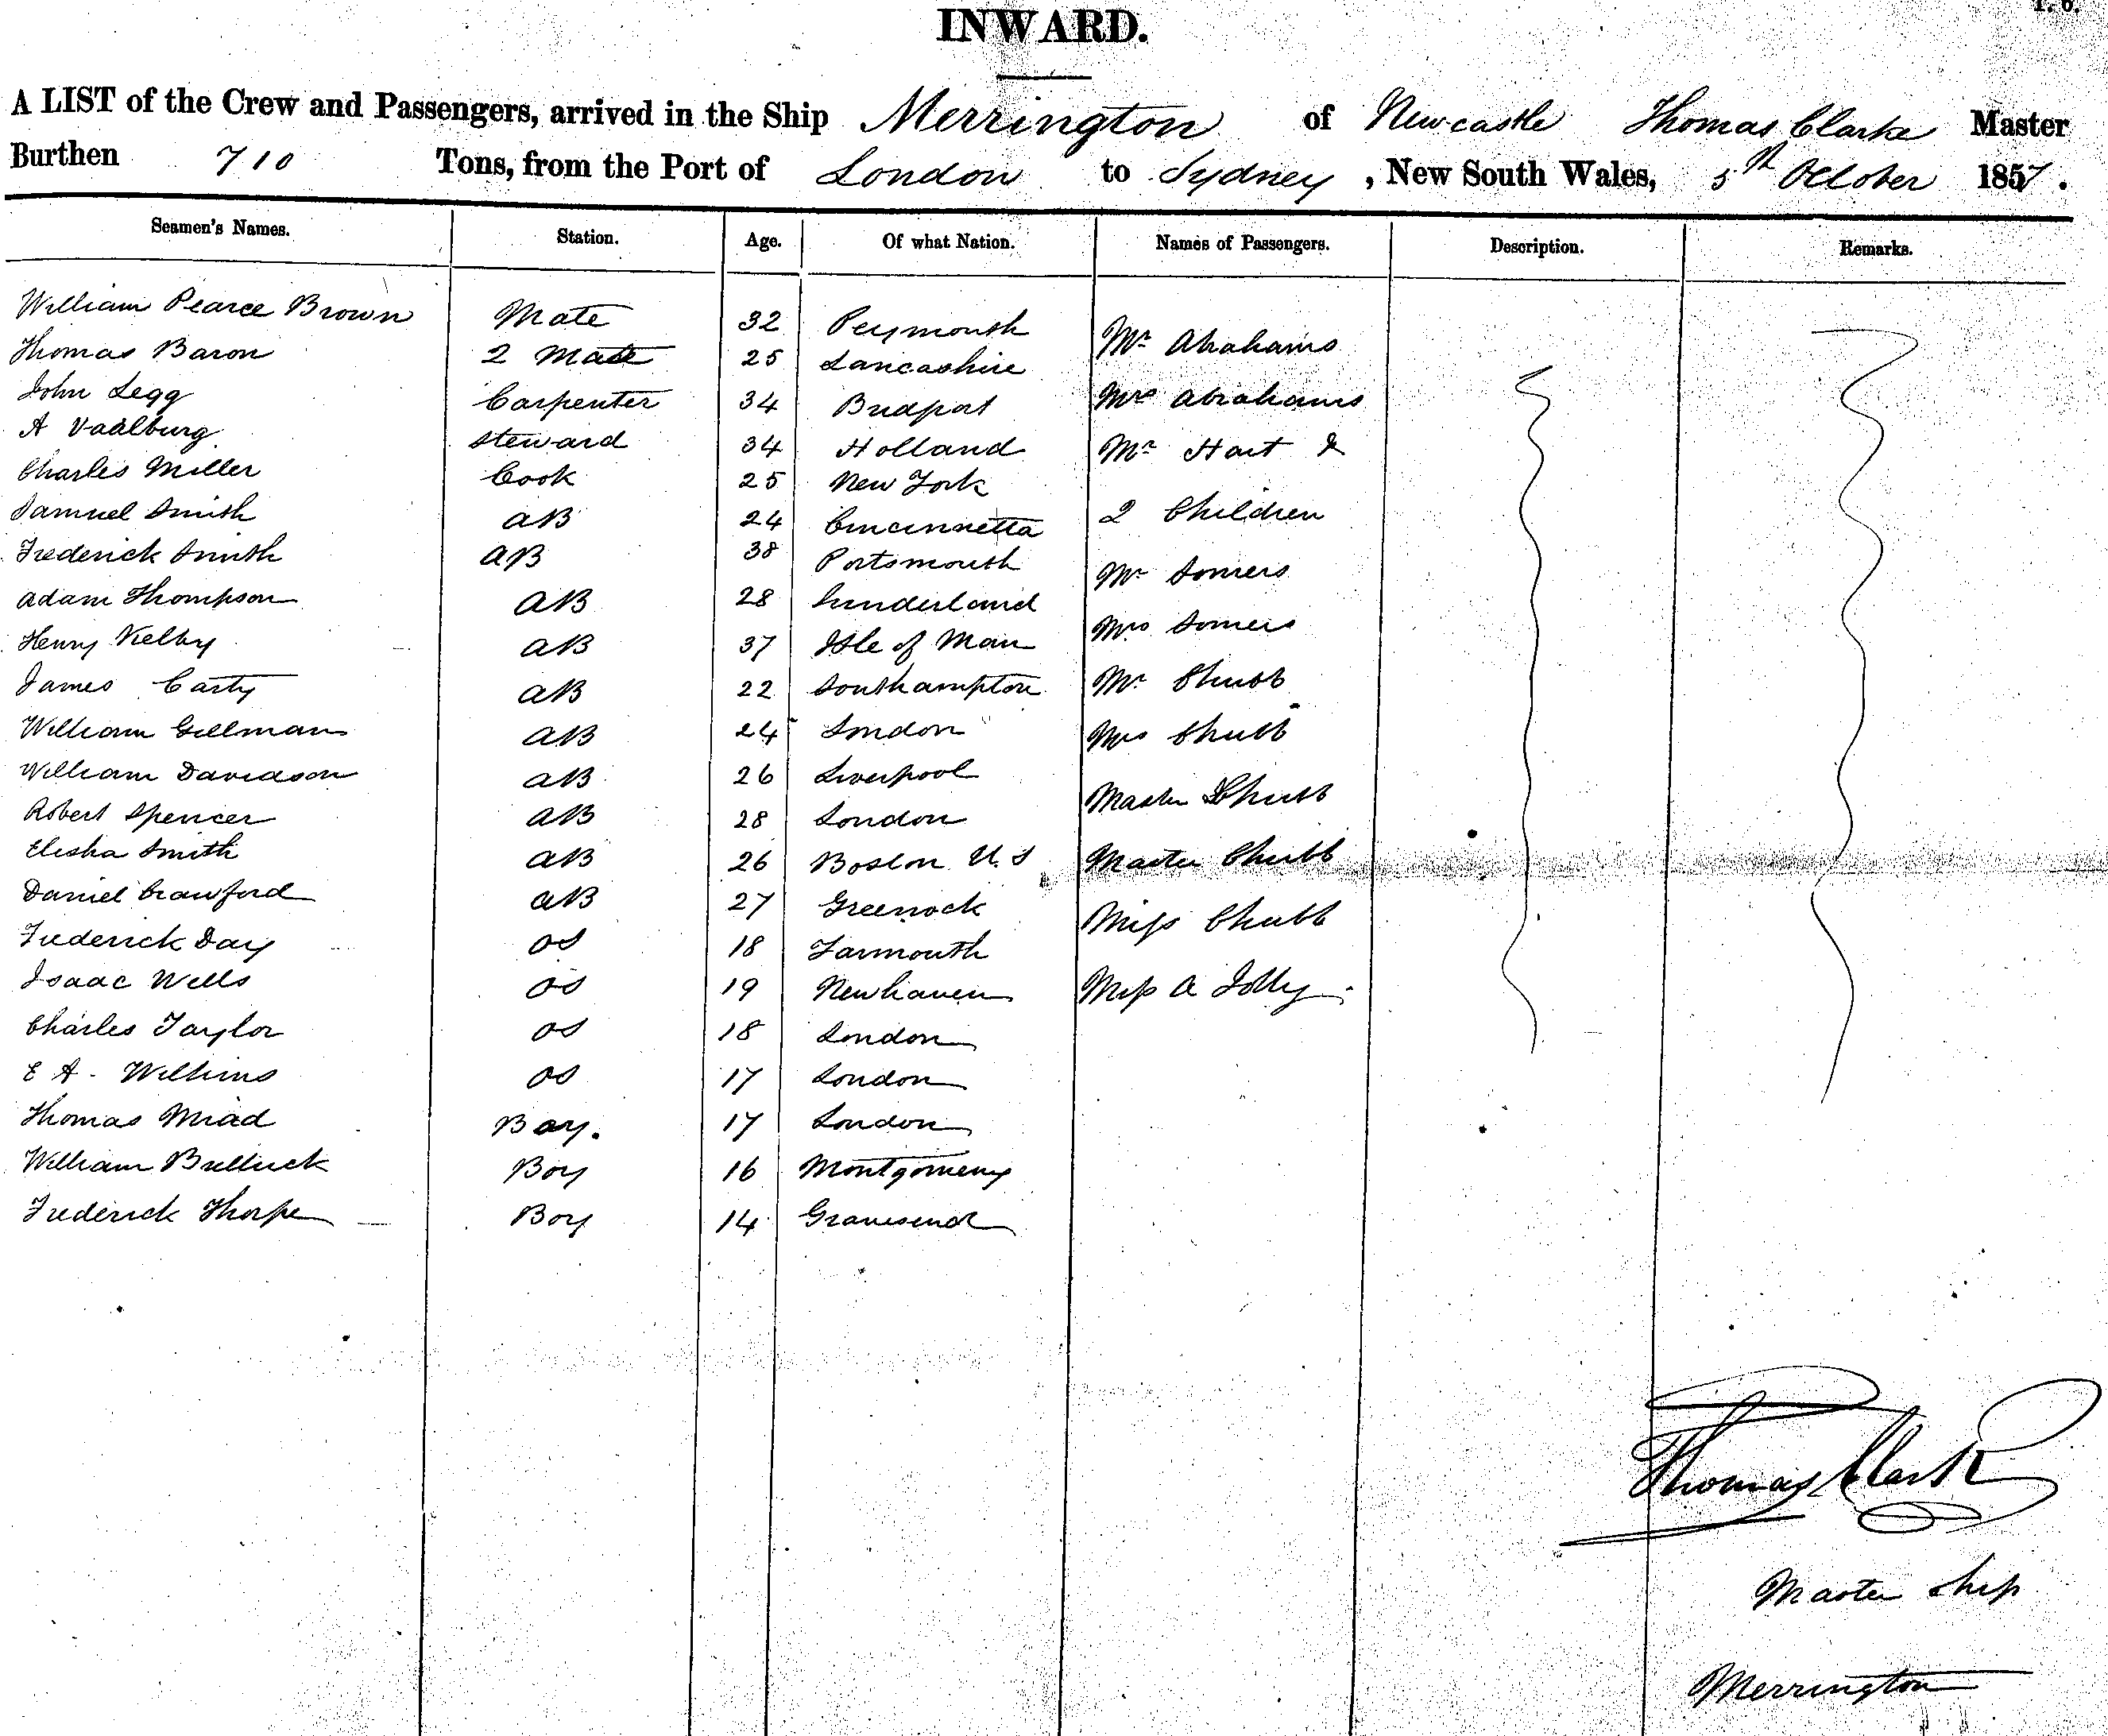 INWARD.
A LIST of the Crew and Passengers, arrived in the Ship Merrington of Newcastle Thomas Clarke Master
Burthen 710 Tons, from the Port of London to Sydney, New South Wales, 5th October 1857.
Seamen's Names. Station. Age. Of what Nation. Names of Passengers. Description. Remarks.
William Pearce Brown Mate 32 Peymouth Mr Abrahams
Thomas Baron 2 Mate 25 Lancashire
John Legg Carpenter 34 Bridport Mrs Abrahams
A Vaalburg Steward 34 Holland Mr Hart &
Charles Miller Cook 25 New York
Samuel Smith AB 24 Cincinnetta 2 Children
Frederick Smith AB 38 Portsmouth Mr Somers
Adam Thompson AB 28 Sunderland Mrs Somers
Henry Kelby AB 37 Isle of Man
James Carty AB 22 Southampton Mr Chubb
William Gillman AB 24 London Mrs Chubb
William Davidson AB 26 Liverpool Master Chubb
Robert Spencer AB 28 London
Elisha Smith AB 26 Boston U.S Master Chubb
Daniel Crawford AB 27 Greenock Miss Chubb
Frederick Day OS 18 Yarmouth
Isaac Wells OS 19 Newhaven Miss A Jolly
Charles Taylor OS 18 London
E A. Wilkins OS 17 London
Thomas Miad Boy. 17 London
William Bulluck Boy 16 Montgomery
Frederick Thorpe Boy 14 Gravesend
Thomas Clark
Master Ship
Merrington